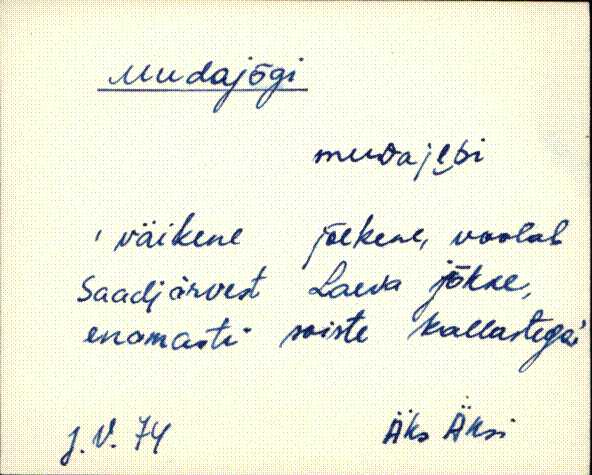 Mudajõgi
mudaje̮ɢi
'väikene jõekene, voolab
Saadjärvest Laeva jõkke,
enamasti soiste kallastega'
J.V. 74 Äks Äksi